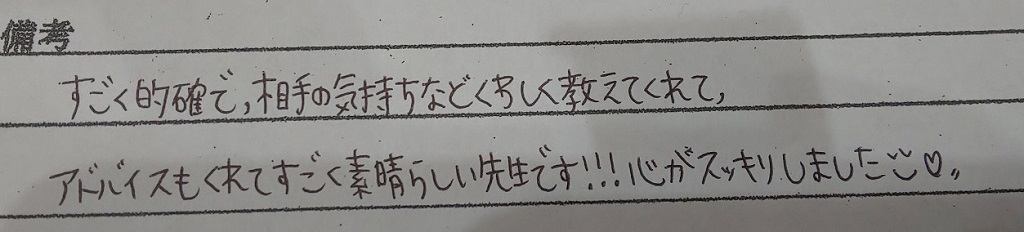 備考
すごく的確で,相手の気持ちなどくわしく教えてくれて,
アドバイスもくれてすごく素晴らしい先生です!!!心がスッキリしました♡〃